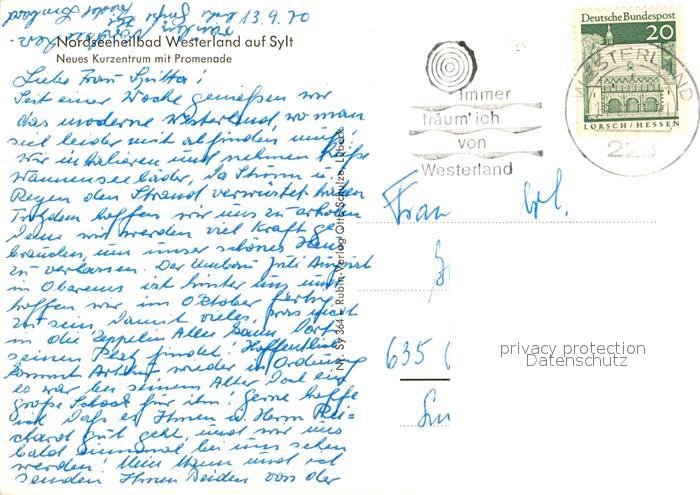 13.9.70
Nordseeheilbad Westerland auf Sylt
Neues Kurzentrum mit Promenade
Liebe Frau Spitta!
Seit einer Woche genießen wir
das moderne Westerland, wo man
sich leider mit abfinden muß!
Wir inhalieren und nehmen heiße
Wannenbäder, da Sturm u.
Regen den Strand verwüstet haben
Trotzdem hoffen wir uns zu erholen
Denn wir werden viel Kraft ge-
brauchen, um unser schönes Haus
zu verlassen. Der Umbau Juli August
in Oberems ist hinter uns und
hoffen wir im Oktober fertig
zu sein, damit vieles, was nicht
in die Zeppelin Allee kann, dort
seinen Platz findet! Hoffentlich
kommt Arthur wieder in Ordnung
es war bei seinem Alter doch ein
große Schock für ihn! Gerne hoffe
ich daß es Ihnen u. Herrn Ri-
chard gut geht, und wir uns
bald einmal bei uns sehen
werden! Mein Mann und ich
senden Ihnen Beiden von der
Nr. Sy 364 Rubin-Verlag Otto Schulze, Lübeck
Immer
träum' ich
von
Westerland
Deutsche Bundespost
20
LORSCH/HESSEN
WESTERLAND
228
Frau
635
privacy protection
Datenschutz